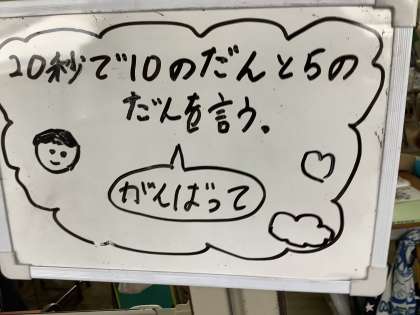 20秒で10のだんと5の
だんを言う。
がんばって